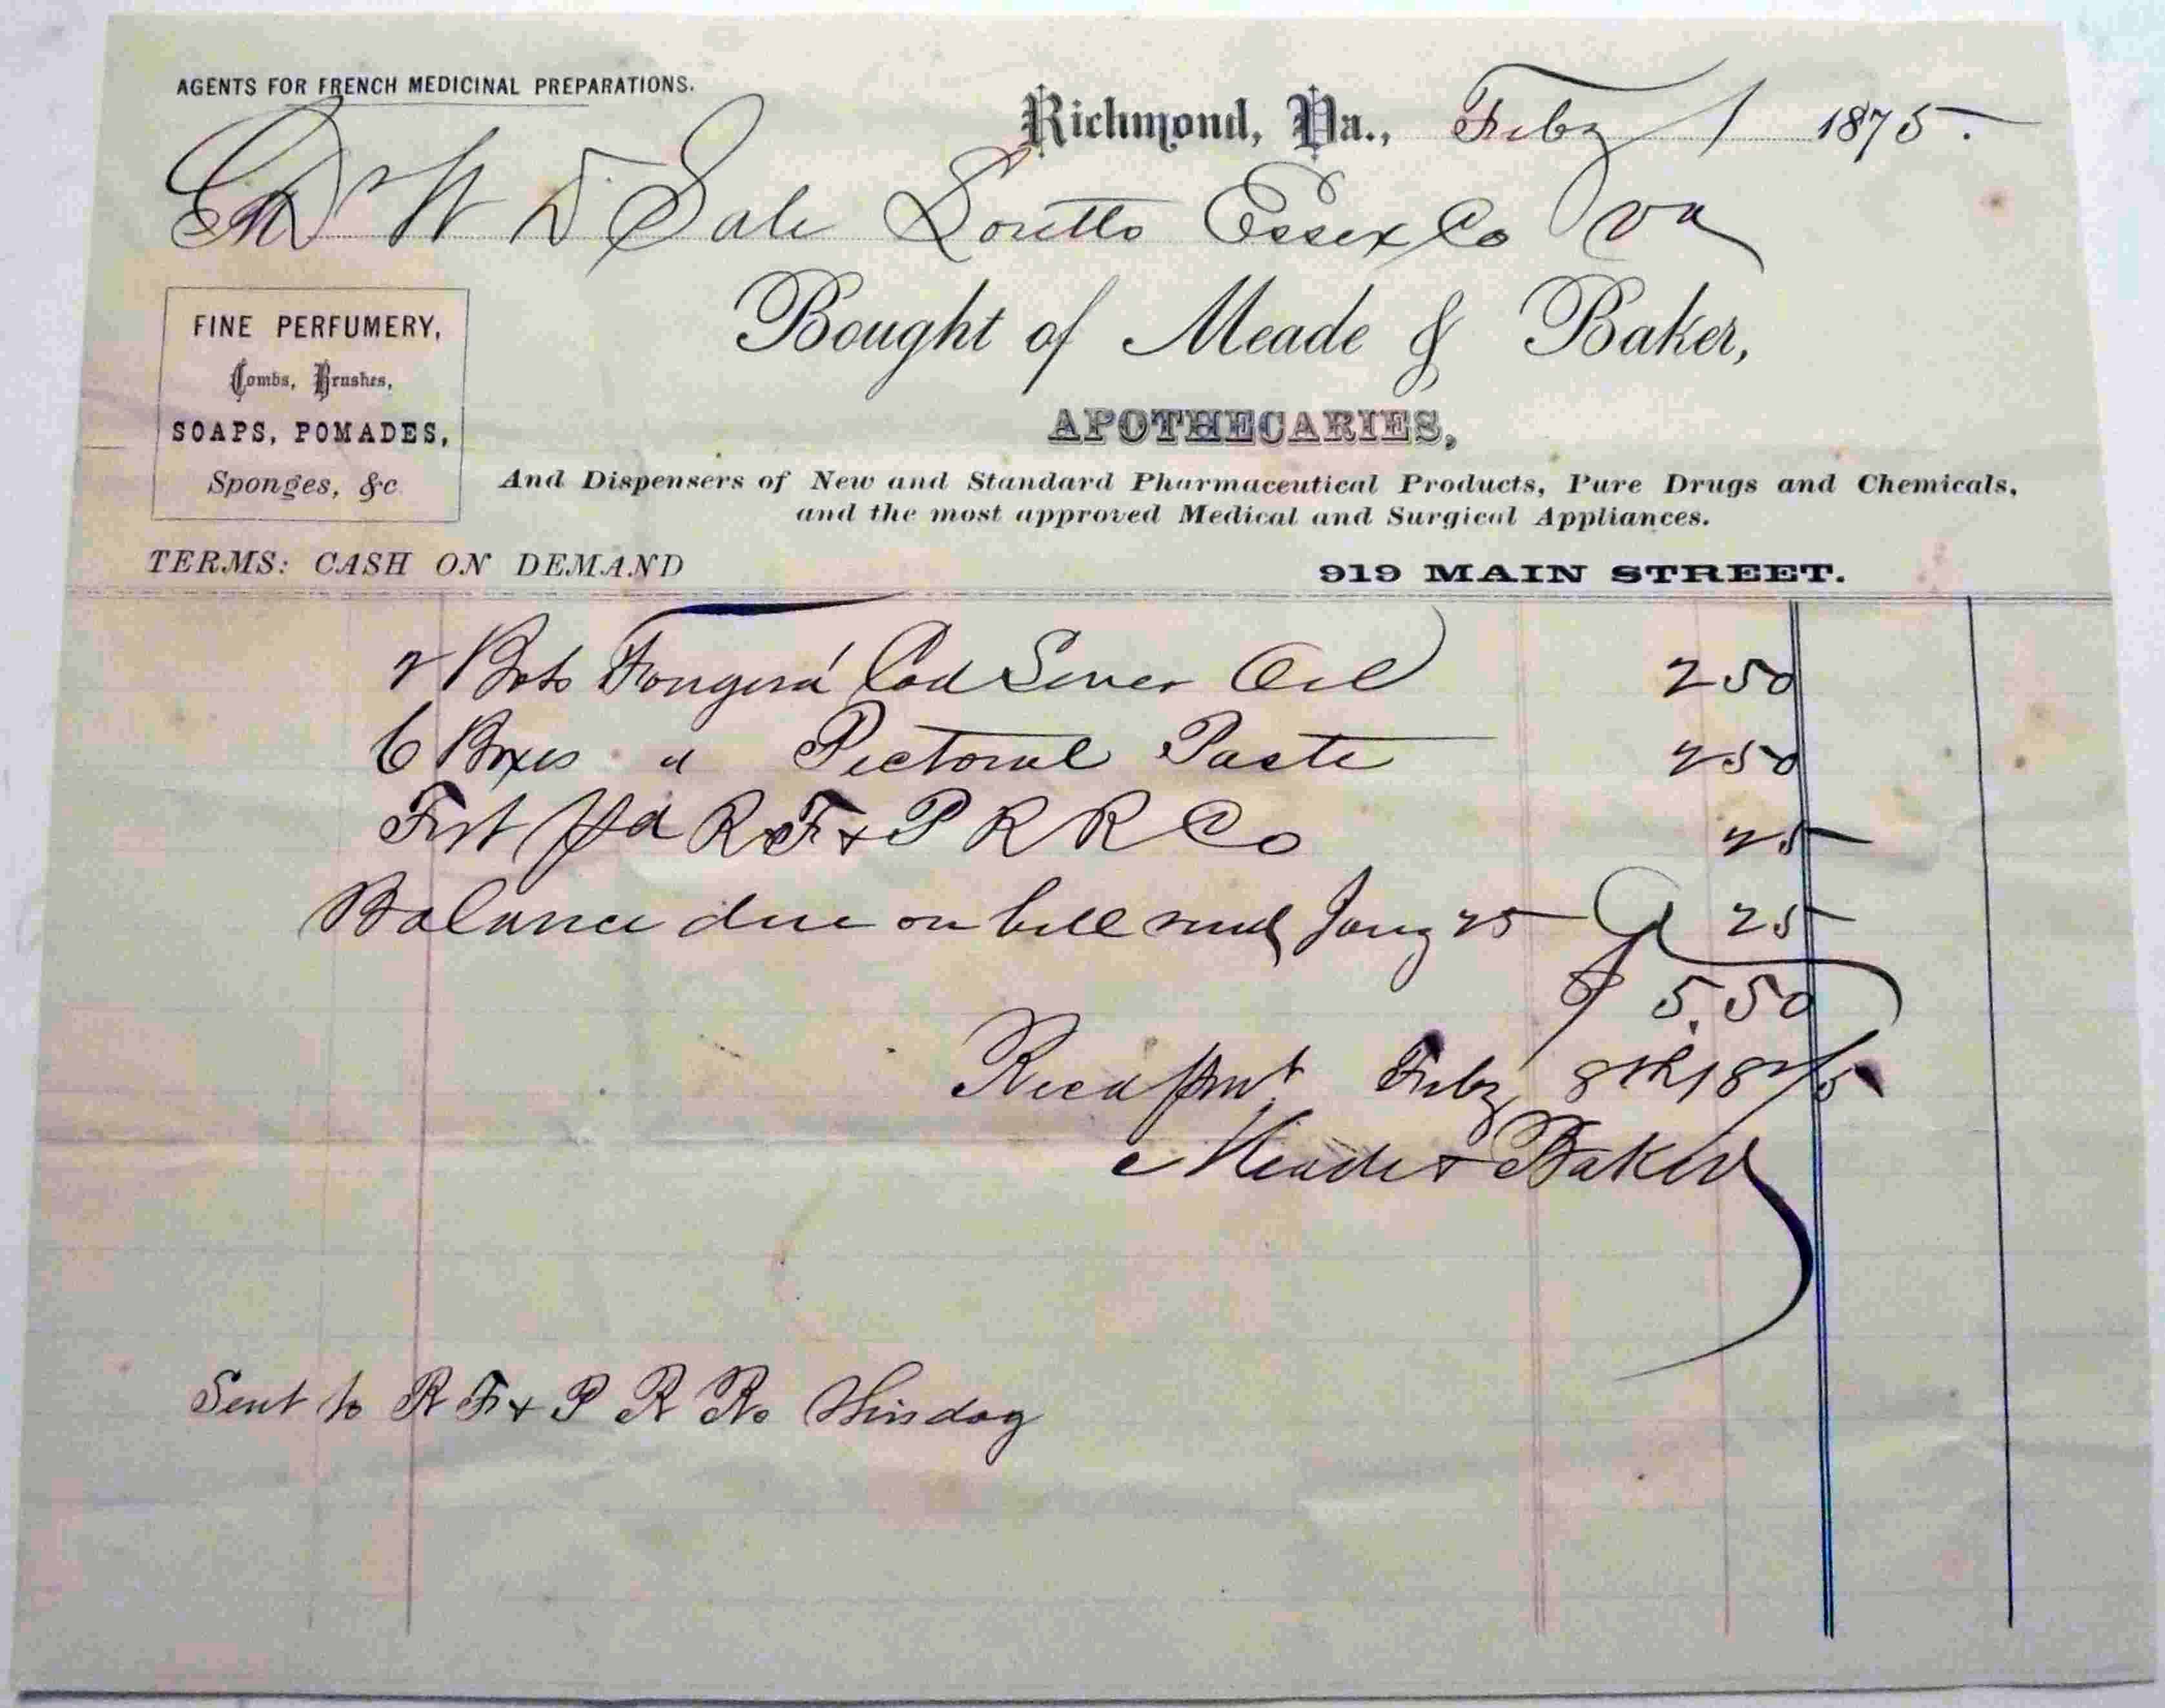 AGENTS FOR FRENCH MEDICINAL PREPARATIONS.
Richmond, Va., Feby 1 1875.
Dr W D Sale Loretto Essex Co Va
Bought of Meade & Baker,
FINE PERFUMERY,
Combs, Brushes,
SOAPS, POMADES,
Sponges, &c
APOTHECARIES,
And Dispensers of New and Standard Pharmaceutical Products, Pure Drugs and Chemicals,
and the most approved Medical and Surgical Appliances.
TERMS: CASH ON DEMAND
919 MAIN STREET.
2 Bots Fougera' Cod Liver Oil 2 50
6 Boxes " Pectoral Paste 2 50
Frt Pd R F & P R R Co 25
Balance due on bill Jany 25 25
$ 5.50
Recd pmt Feby 8th 1875
Meade & Baker
Sent to R F & P R R